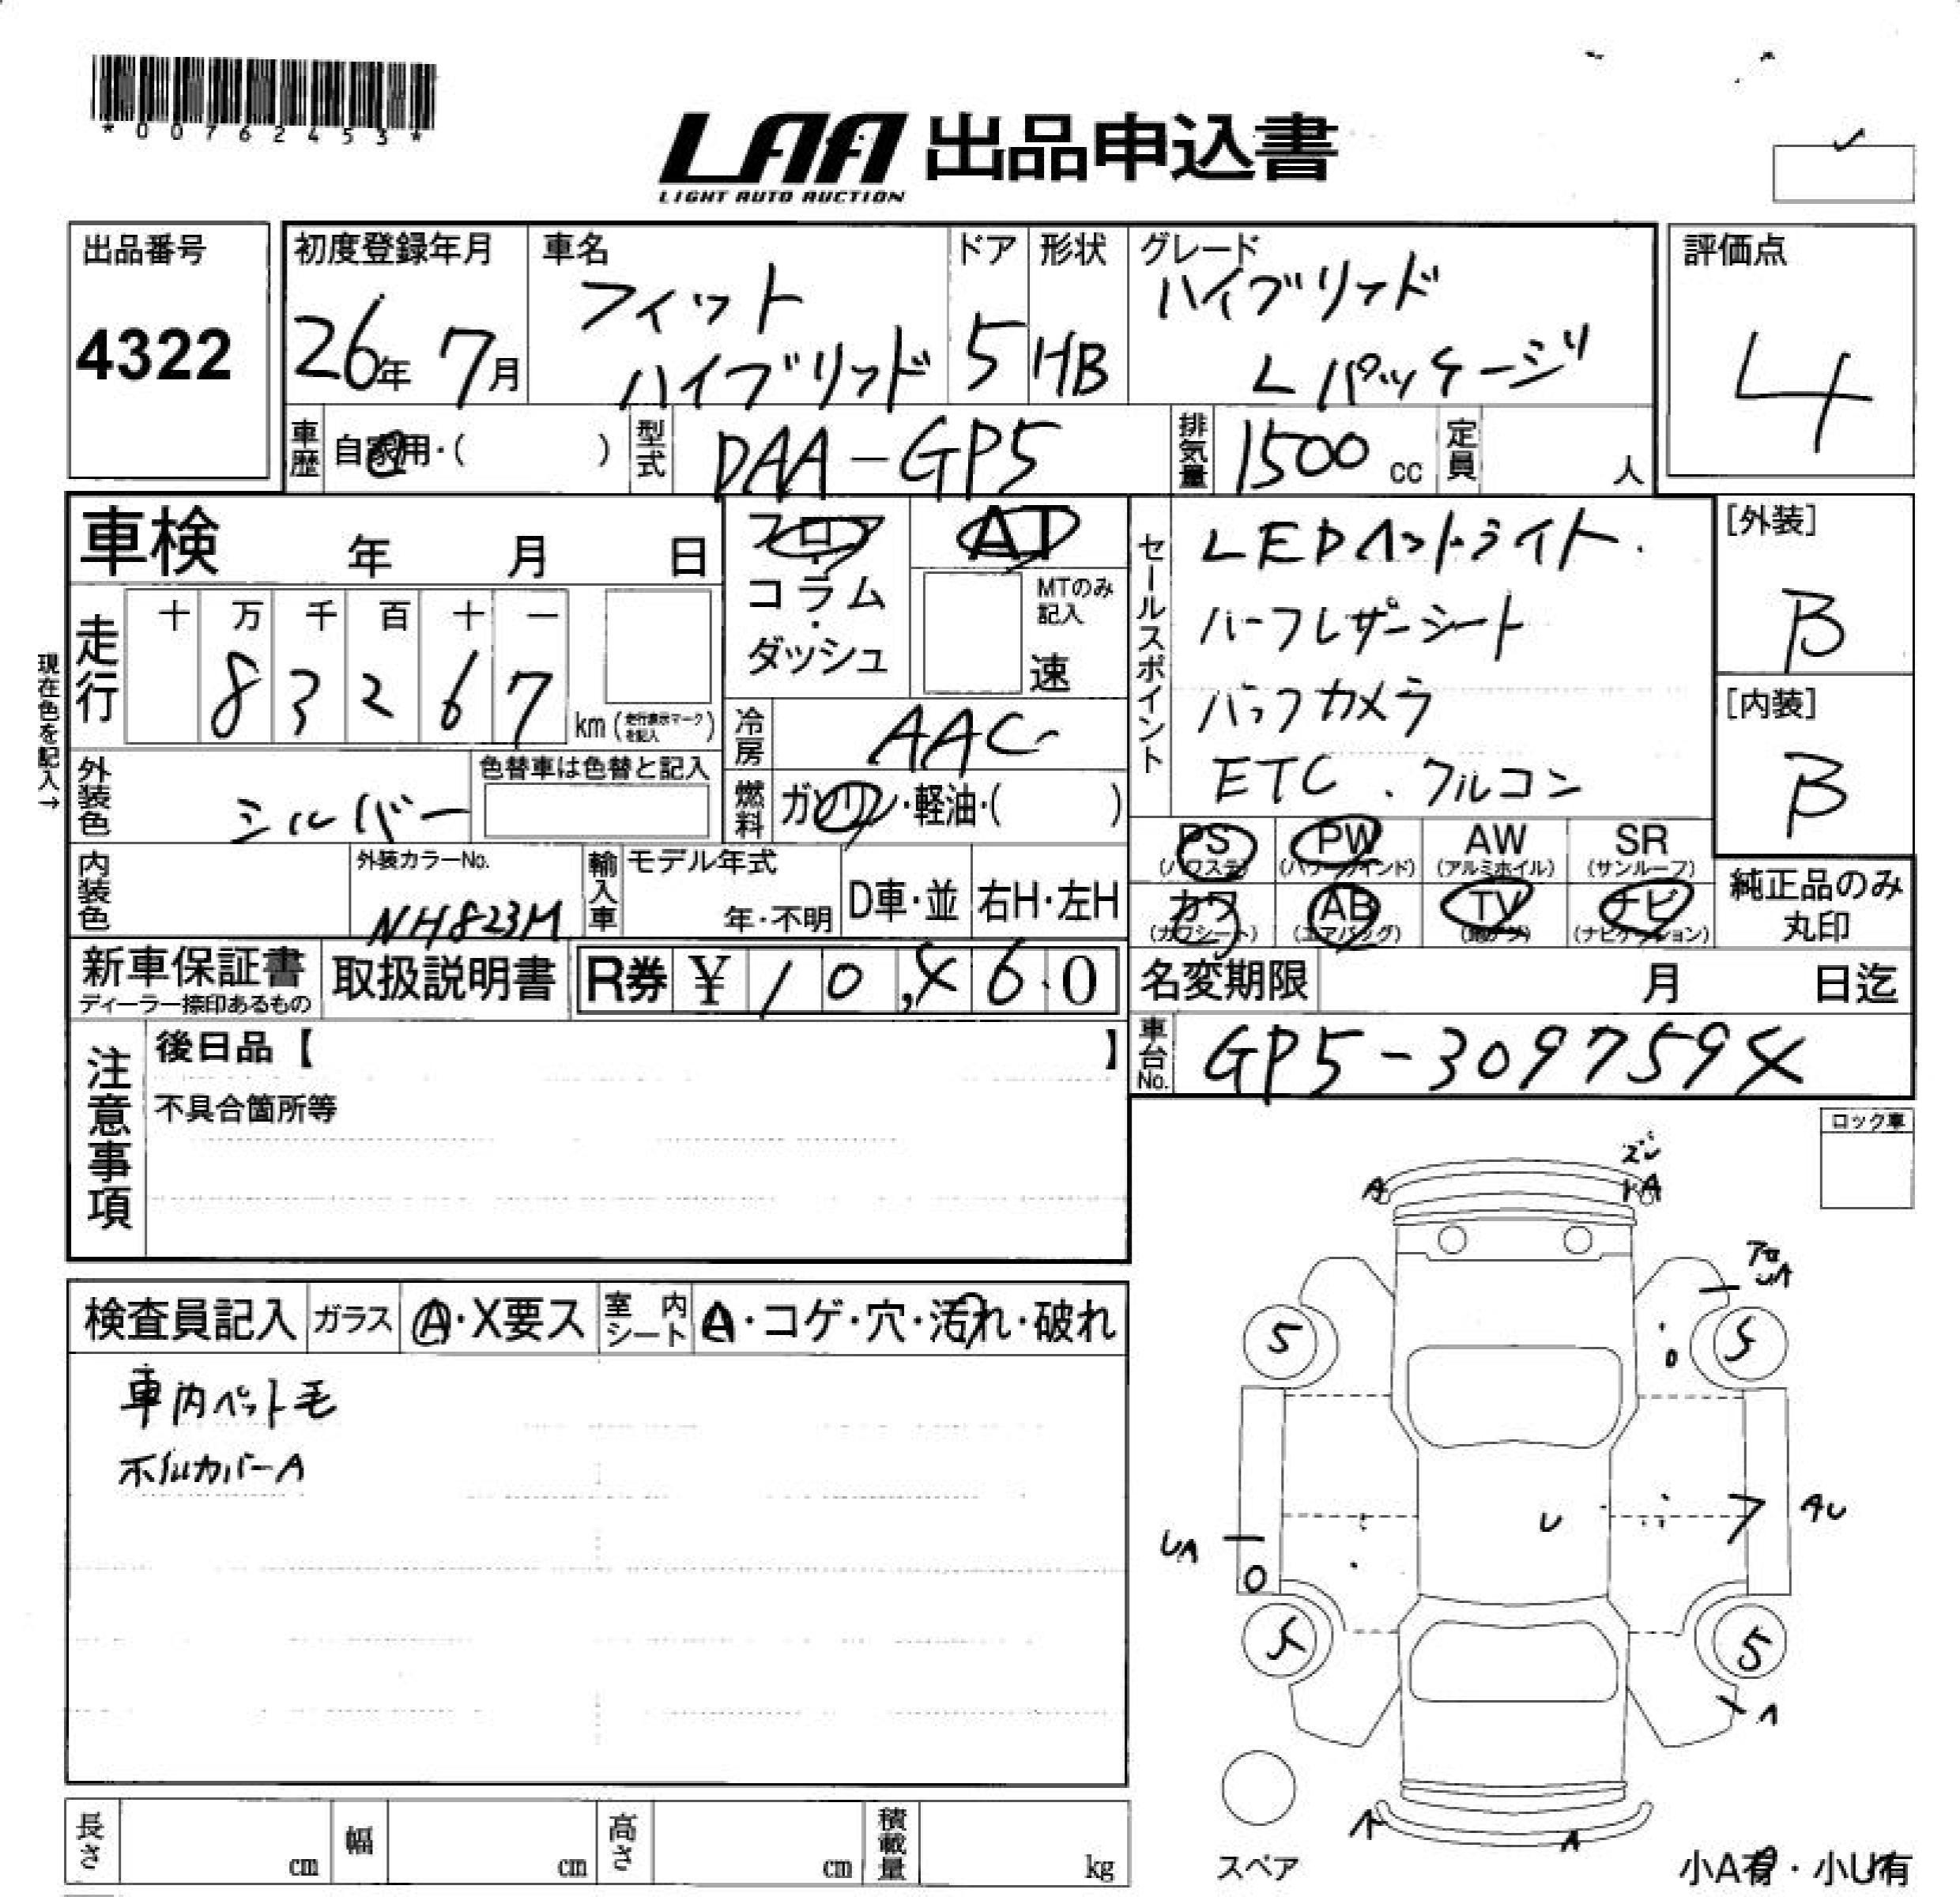 *00762453*
LAA 出品申込書
LIGHT AUTO AUCTION
出品番号
4322
初度登録年月
26年 7月
車名
フィット
ハイブリッド
ドア
5
形状
HB
グレード
ハイブリッド
Lパッケージ
評価点
4
車歴
自家用・( )
型式
DAA-GP5
排気量
1500 cc
定員
人
車検 年 月 日
フロア
・
コラム
・
ダッシュ
AT
MTのみ
記入
速
セールスポイント
LEDヘットライト.
ハーフレザーシート
バックカメラ
ETC.クルコン
[外装]
B
[内装]
B
現在色を記入→
走行
十 万 千 百 十 一
8 3 2 6 7
km (走行表示マークを記入)
冷房
AAC
燃料
ガソリン・軽油・( )
外装色
シルバー
色替車は色替と記入
内装色
外装カラーNo.
NH823M
輸入車
モデル年式
年・不明
D車・並
右H・左H
PS
(パワステ)
PW
(パワーウインド)
AW
(アルミホイル)
SR
(サンルーフ)
カワ
(カワシート)
AB
(エアバッグ)
TV
(地デジ)
ナビ
(ナビゲーション)
純正品のみ
丸印
新車保証書
ディーラー捺印あるもの
取扱説明書
R券 ¥ 10,460
名変期限 月 日迄
車台No.
GP5-3097594
注意事項
後日品【 】
不具合箇所等
ロック車
検査員記入
ガラス
A・X要ス
室内
シート
A・コゲ・穴・汚れ・破れ
車内ペット毛
ホイルカバーA
ズレ
A
YA
UA
5
5
U
AU
UA
5
5
A
A
A
スペア
小A有・小U有
長さ
cm
幅
cm
高さ
cm
積載量
kg